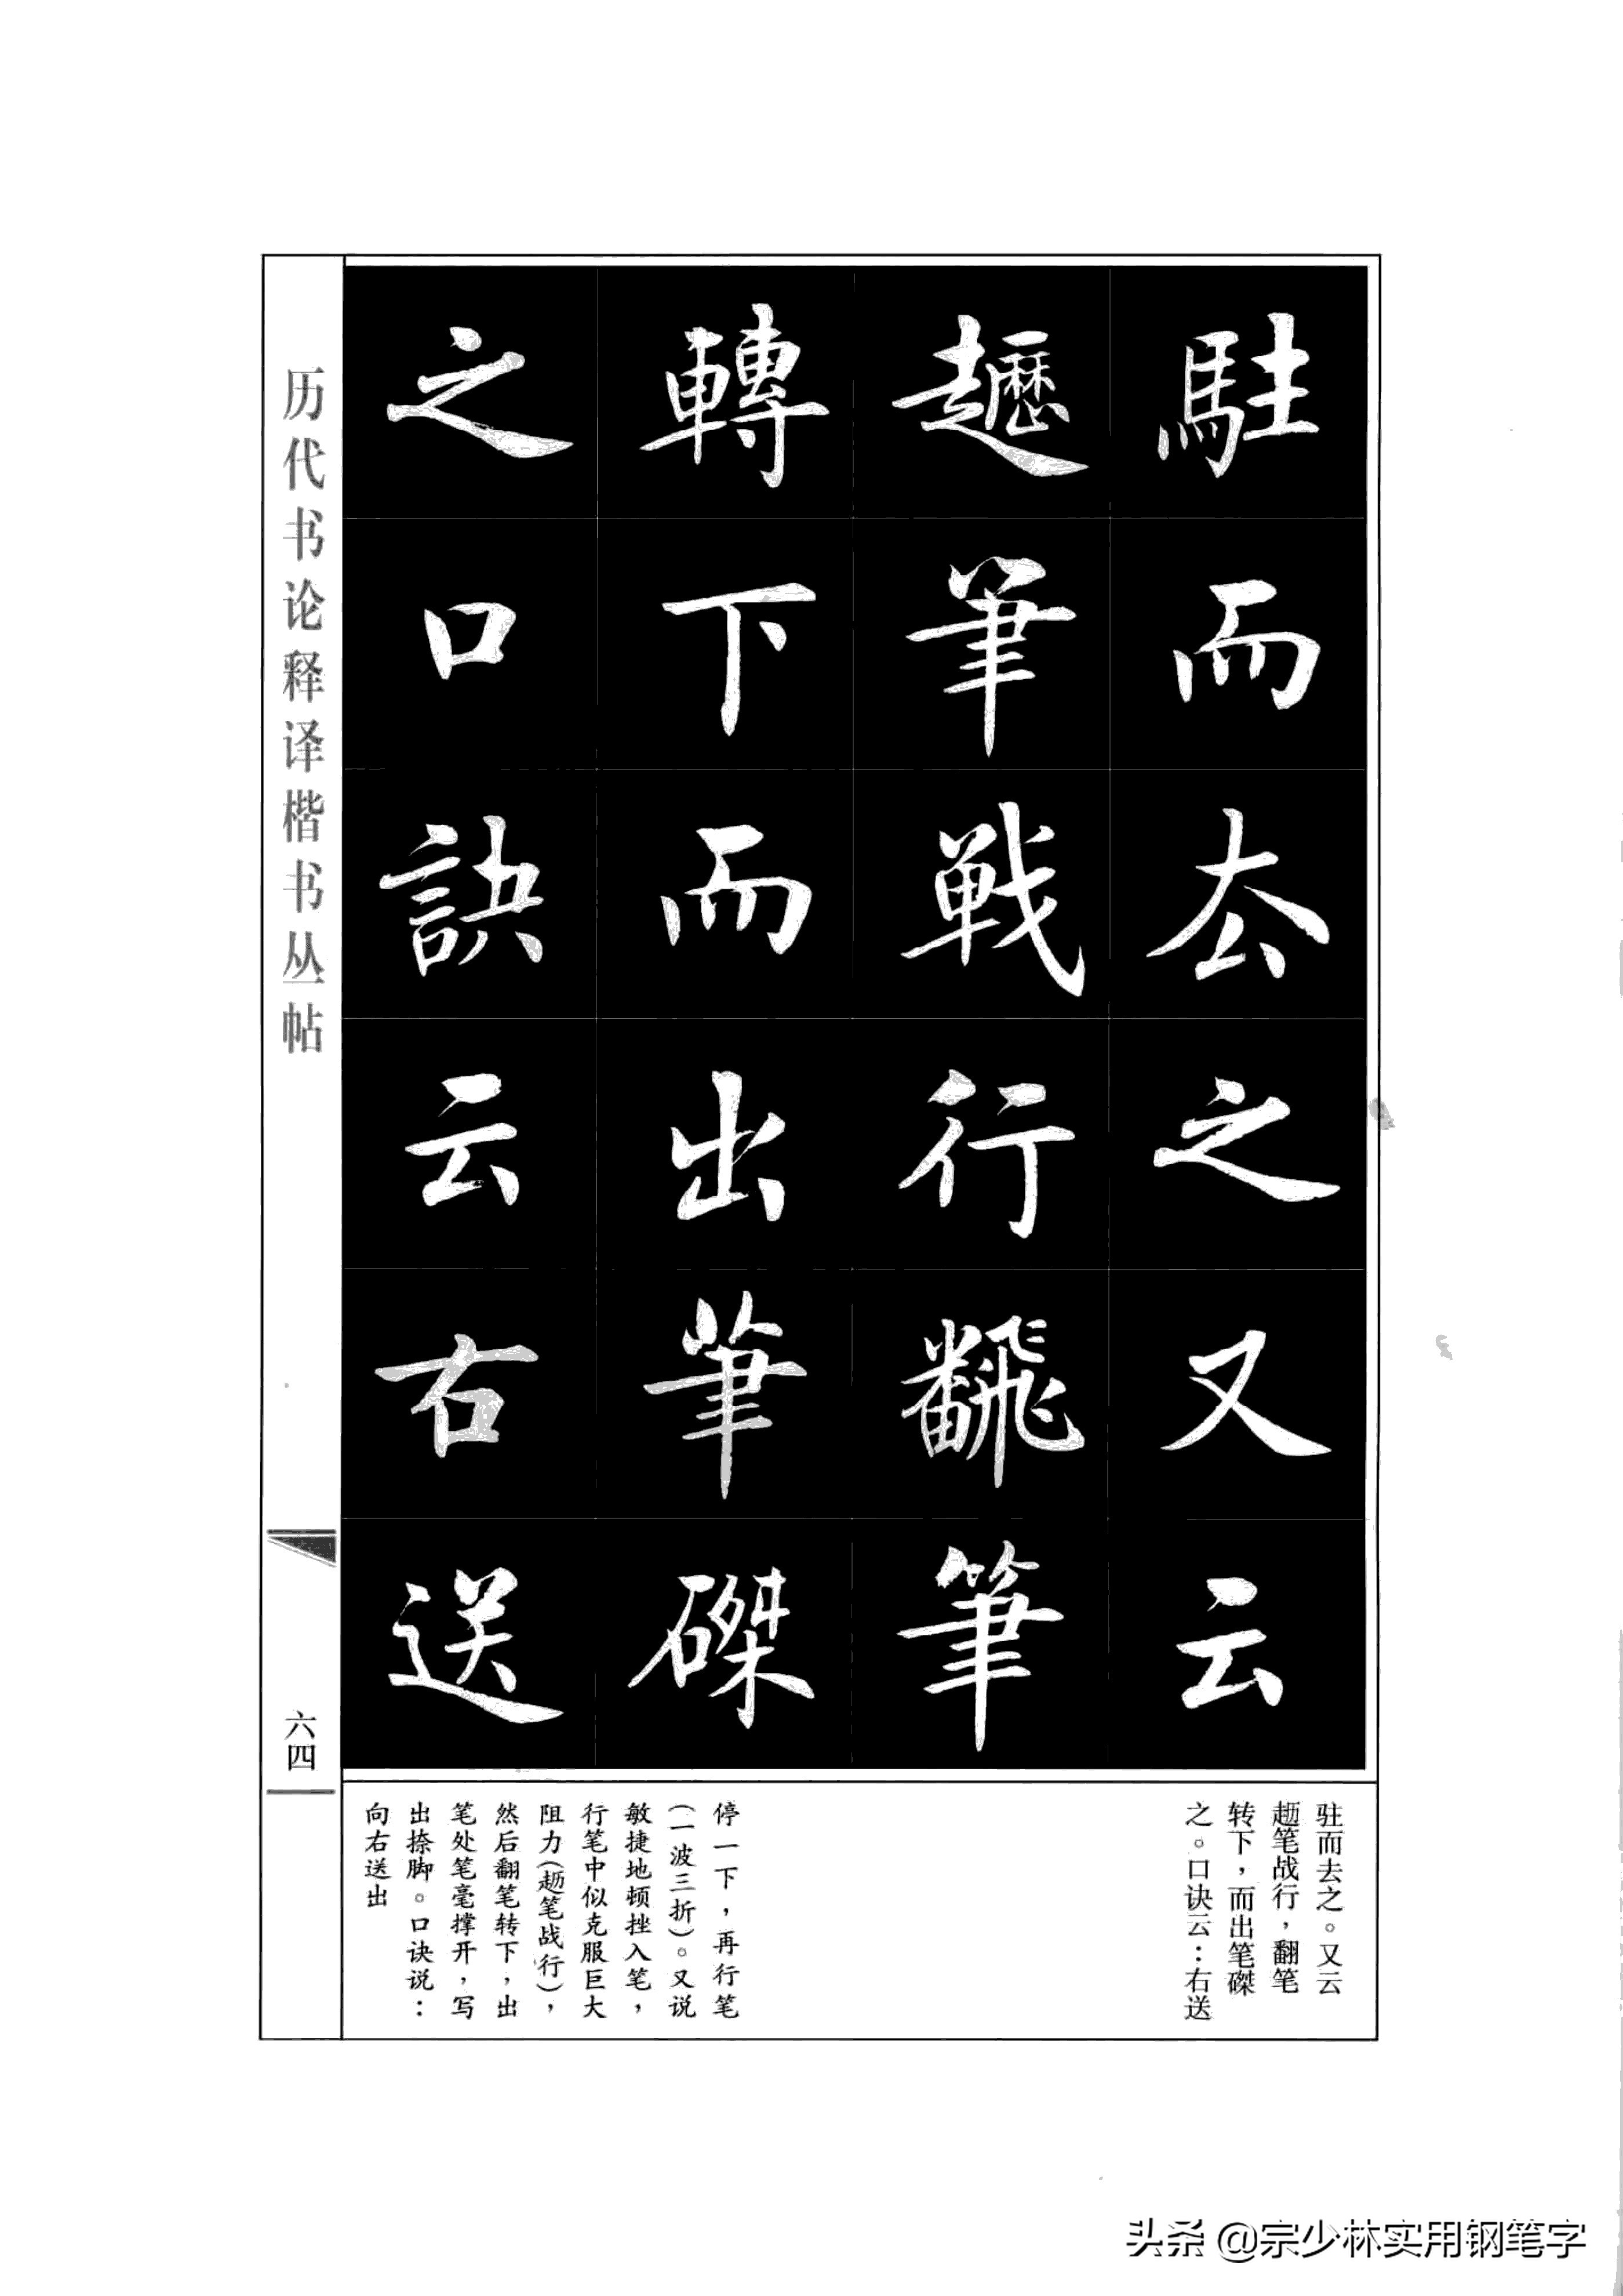 駐而去之又云
趯筆戰行飜筆
轉下而出筆磔
之口訣云右送
驻而去之。又云
趯笔战行，翻笔
转下，而出笔磔
之。口诀云：右送
停一下，再行笔
（一波三折）。又说
敏捷地顿挫入笔，
行笔中似克服巨大
阻力（趯笔战行），
然后翻笔转下，出
笔处笔毫撑开，写
出捺脚。口诀说：
向右送出
历代书论释译楷书丛帖
六四
头条 @宗少林实用钢笔字